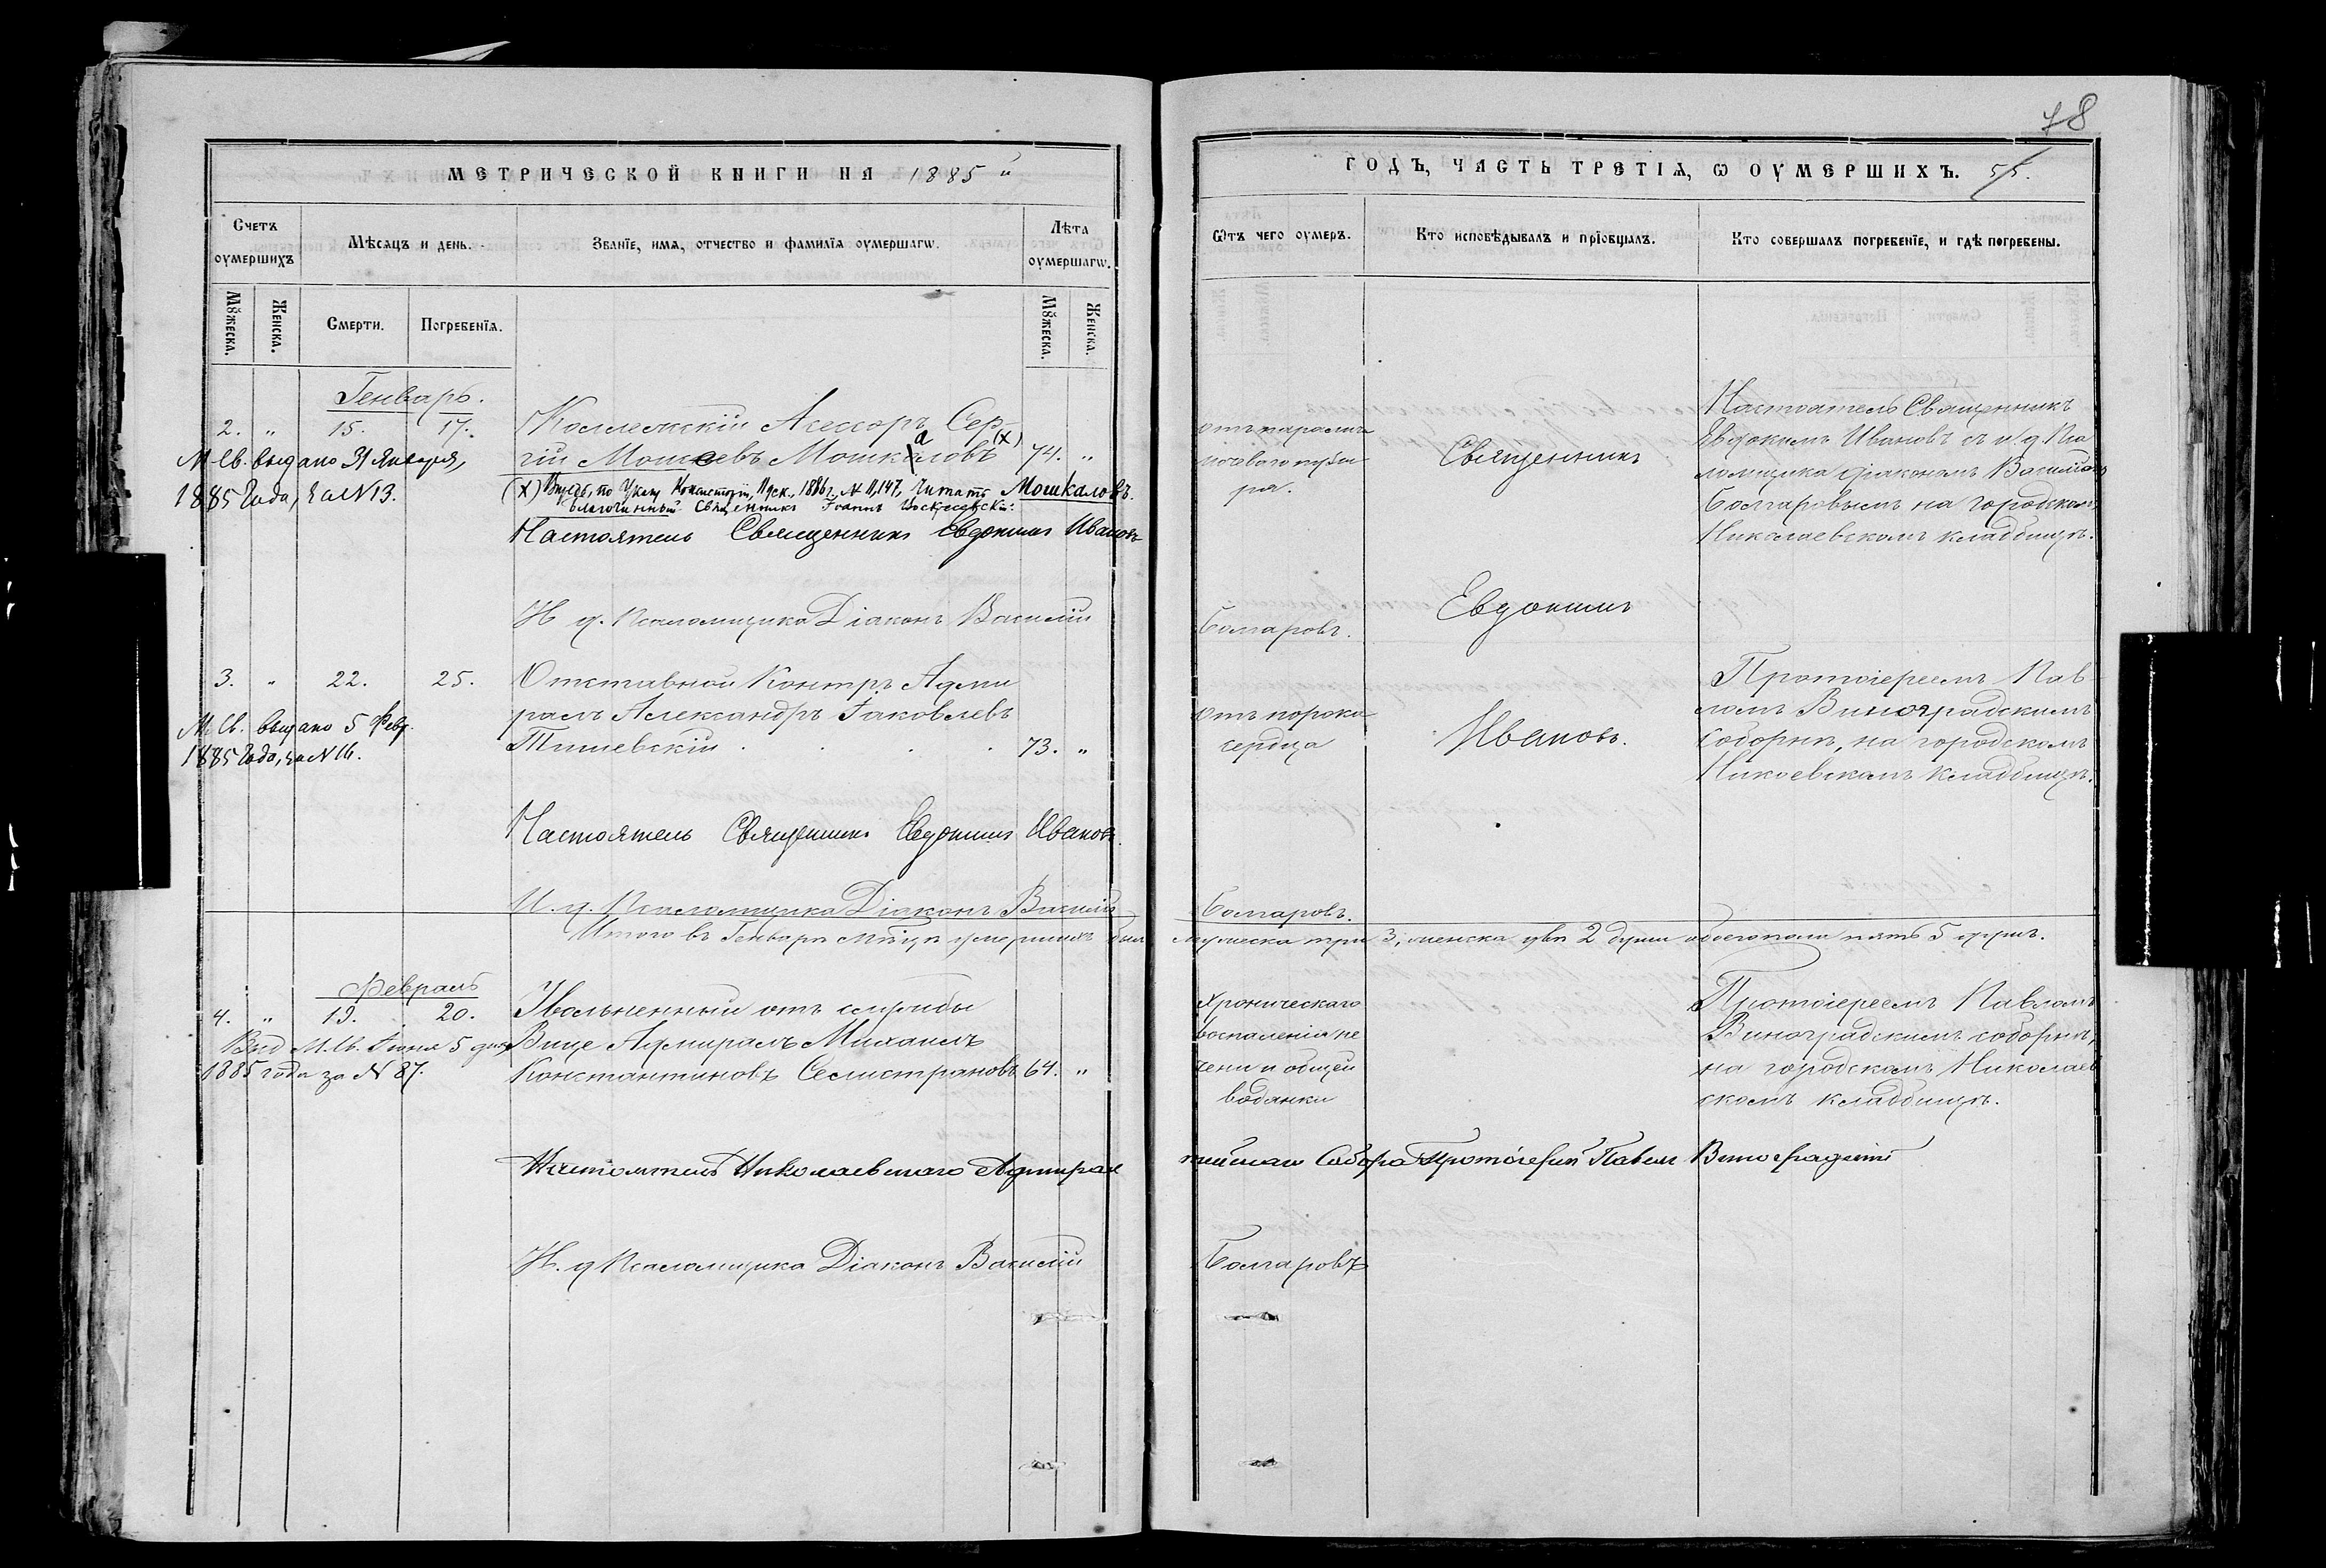 78
МЕТРИЧЕСКОЙ КНИГИ НА 1885 "
Счетъ оумершихъ
Мѣсяцъ и день.
Званїе, имѧ, отчество и фамилїѧ оумершагѡ.
Лѣта оумершагѡ.
Мꙋжеска.
Женска.
Смерти.
Погребенїѧ.
Мꙋжеска.
Женска.
Генварь.
2. " 15. 17. Коллежскій Асессоръ Сер
гій Мошкаловъ (х) 74. "
М. Св. выдано 31 Января,
1885 Года, за N 13.
(х) Указу Консисторіи, 1886 г. N 11,147, читать Мошкаловъ.
Благочинный Священникъ Іоаннъ Воскресенскій:
Настоятель Священникъ Евдокимъ Ивановъ
И д. Псаломщика Діаконъ Василій
3. " 22. 25. Отставной Контръ Адми
ралъ Александръ Іаковлевъ
73. "
М. Св. выдано 5 Февр.
1885 Года, за N 16.
Настоятель Священникъ Евдокимъ Ивановъ.
И. д. Псаломщика Діаконъ Василій
Итого въ Генварѣ мѣсяцѣ умершихъ было
Февраль
4. " 19. 20. Уволенный отъ службы
Вице Адмиралъ Михаилъ
Константиновъ Селистрановъ 64. "
Выд М. Св. Іюня 5 дня
1885 года за N 87.
Настоятель Николаевскаго Адмирал
И. д Псаломщика Діаконъ Василій
ГОДЪ, ЧАСТЬ ТРЕТІѦ, Ѡ ОУМЕРШИХЪ. 55.
Ѿтъ чего оумеръ.
Кто исповѣдывалъ и прїобщалъ.
Кто совершалъ погребенїе, и гдѣ погребены.
отъ паралича
Священникъ
Настоятель Священникъ
Евдокимъ Ивановъ съ и. д. Пса
ломщика діакономъ Василіемъ
Болгаровымъ на городскомъ
Николаевскомъ кладбищѣ.
Болгаровъ.
Евдокимъ
отъ порока
сердца
Ивановъ.
Протоіереемъ Пав
ломъ Виноградскимъ
соборнѣ, на городскомъ
Никоевскомъ кладбищѣ.
Болгаровъ.
мужеска три 3, женска двѣ 2 души обоегопола пять 5 душъ.
Хроническаго
воспаленія пе
чени и общей
водянки
Протоіереемъ Павломъ
Виноградскимъ соборнѣ,
на городскомъ Николаев
скомъ кладбищѣ.
тейскаго Собора Протоіерей Павелъ Виноградскій
Болгаровъ